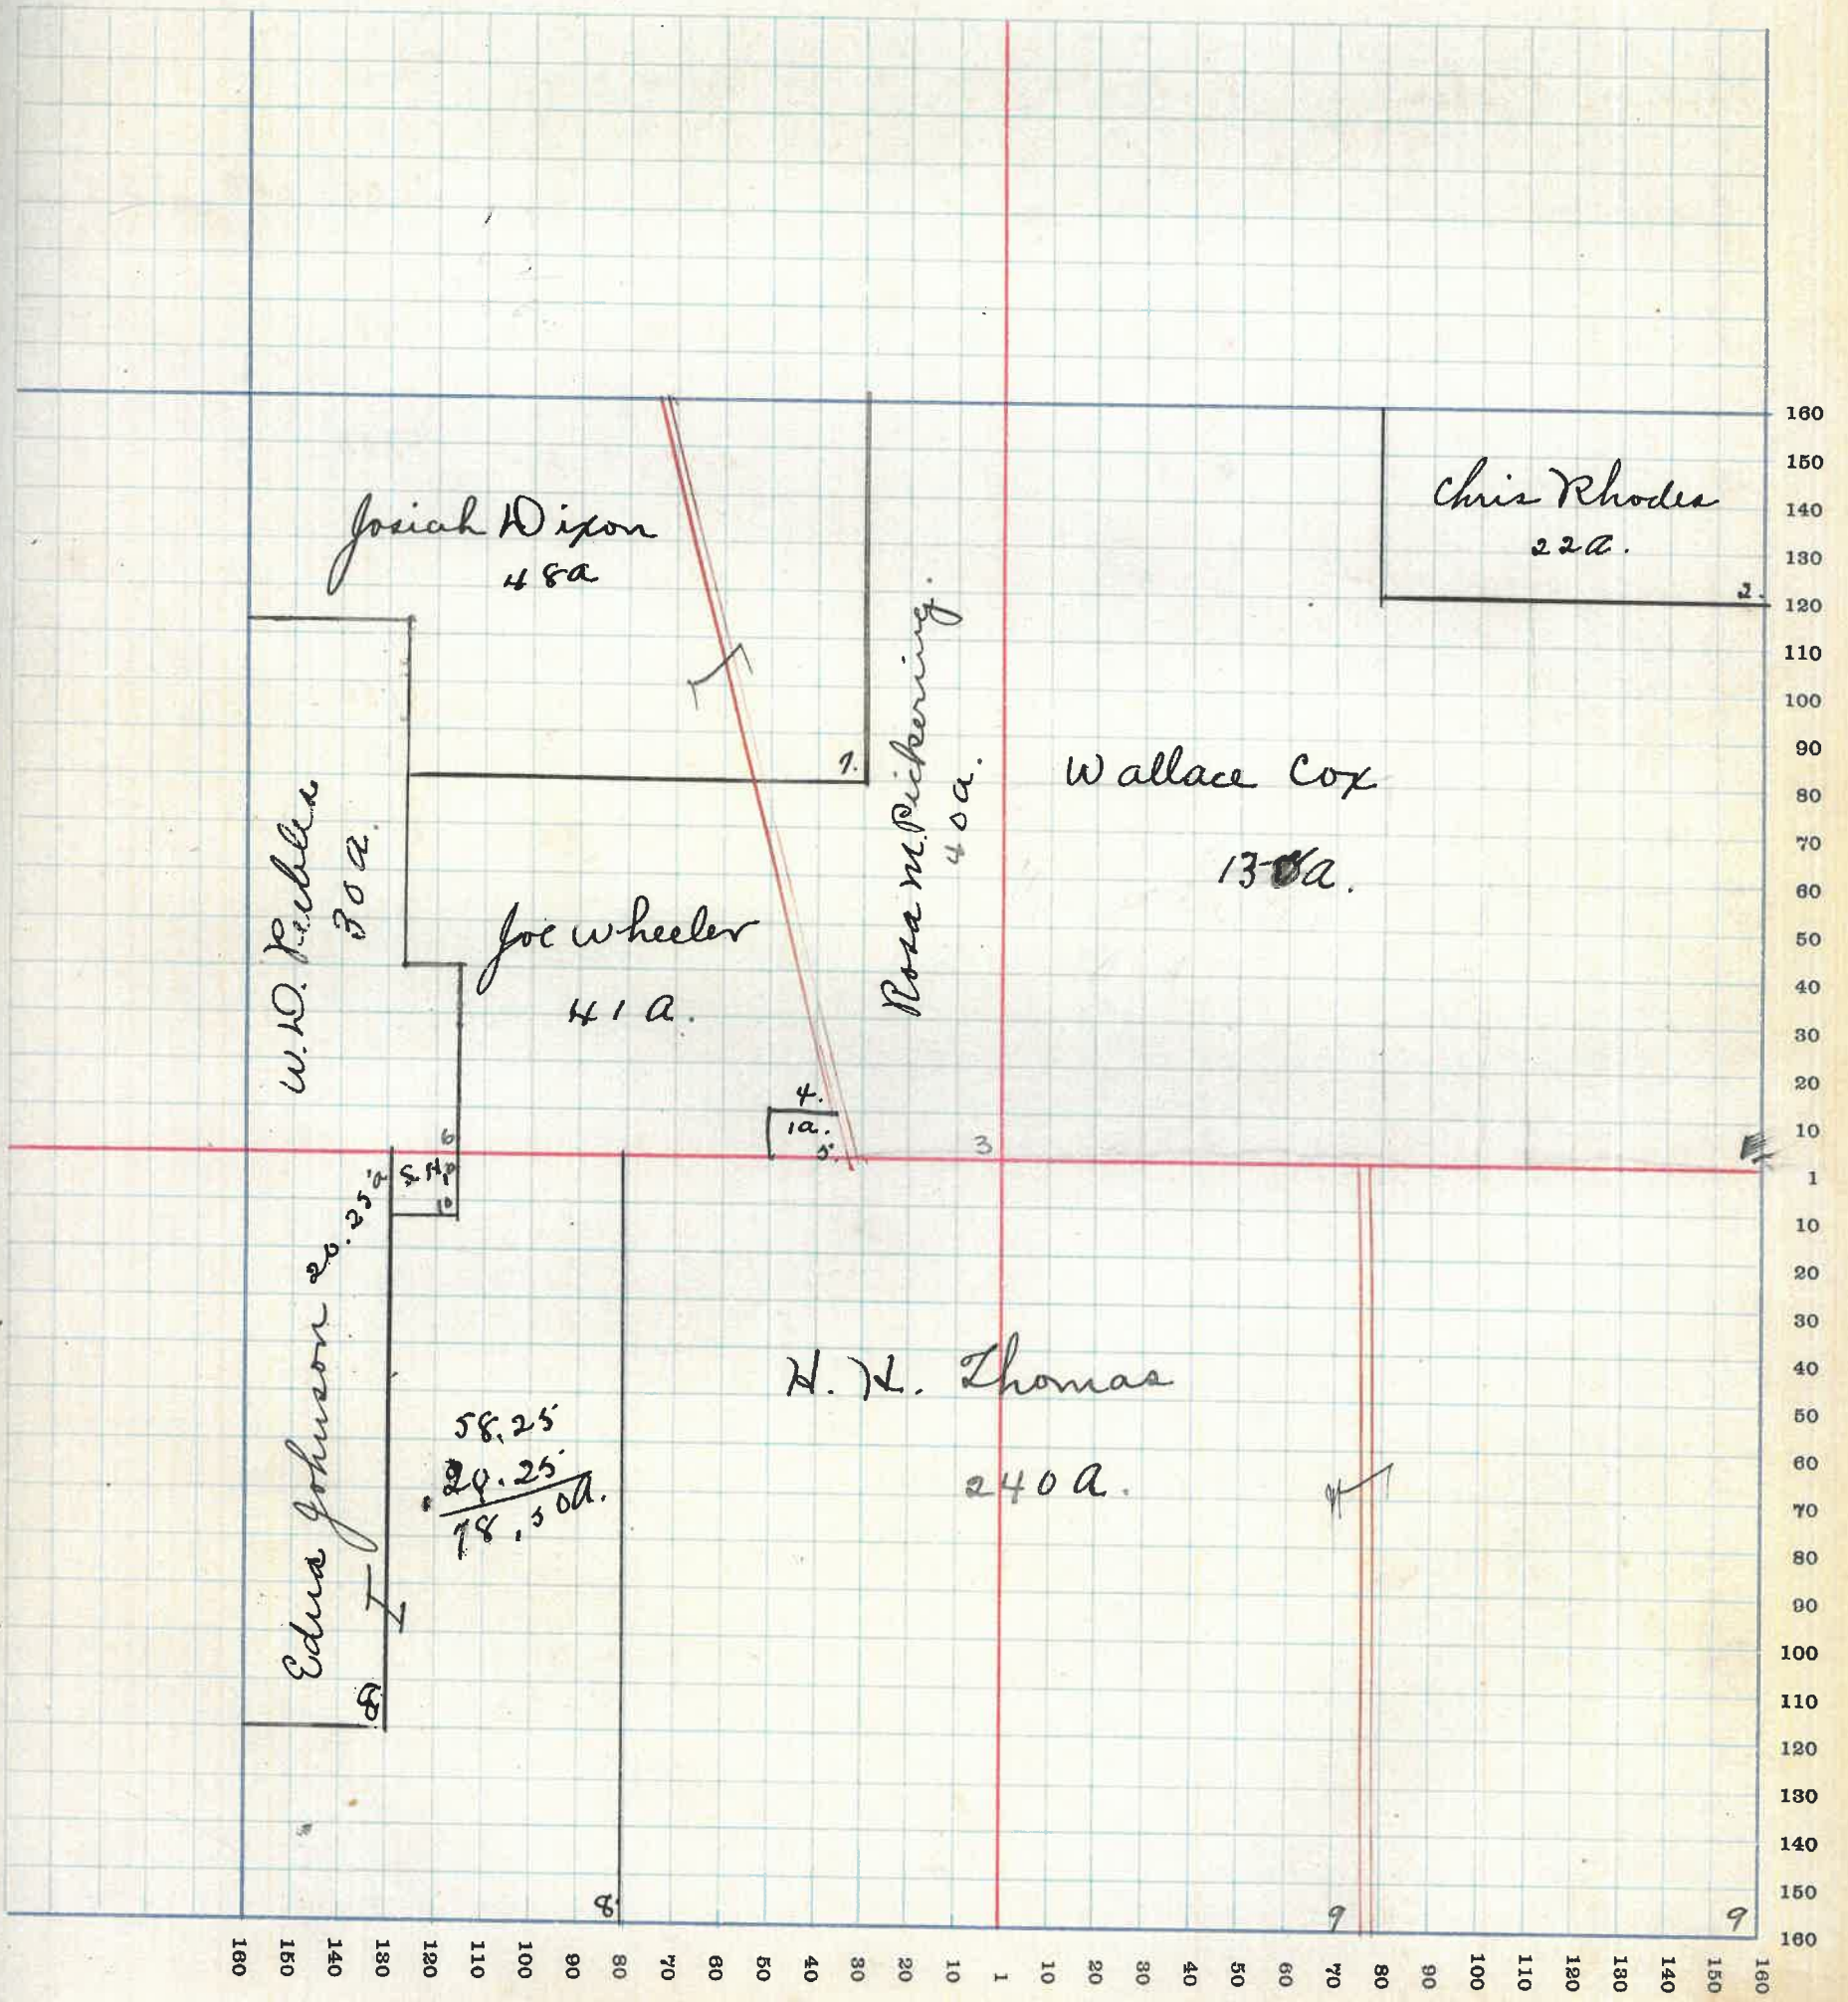 Josiah Dixon
48a
7.
Chris Rhodes
22a.
2.
W.D. Peebles
30a.
Joe Wheeler
41a.
Rosa M. Pickering.
40a.
Wallace Cox
4.
1a.
5.
3
6
Edna Johnson 20.25a
8
58.25
20.25
78.50a.
H. H. Thomas
240a.
8
9
9
160
150
140
130
120
110
100
90
80
70
60
50
40
30
20
10
1
10
20
30
40
50
60
70
80
90
100
110
120
130
140
150
160
160 150 140 130 120 110 100 90 80 70 60 50 40 30 20 10 1 10 20 30 40 50 60 70 80 90 100 110 120 130 140 150 160